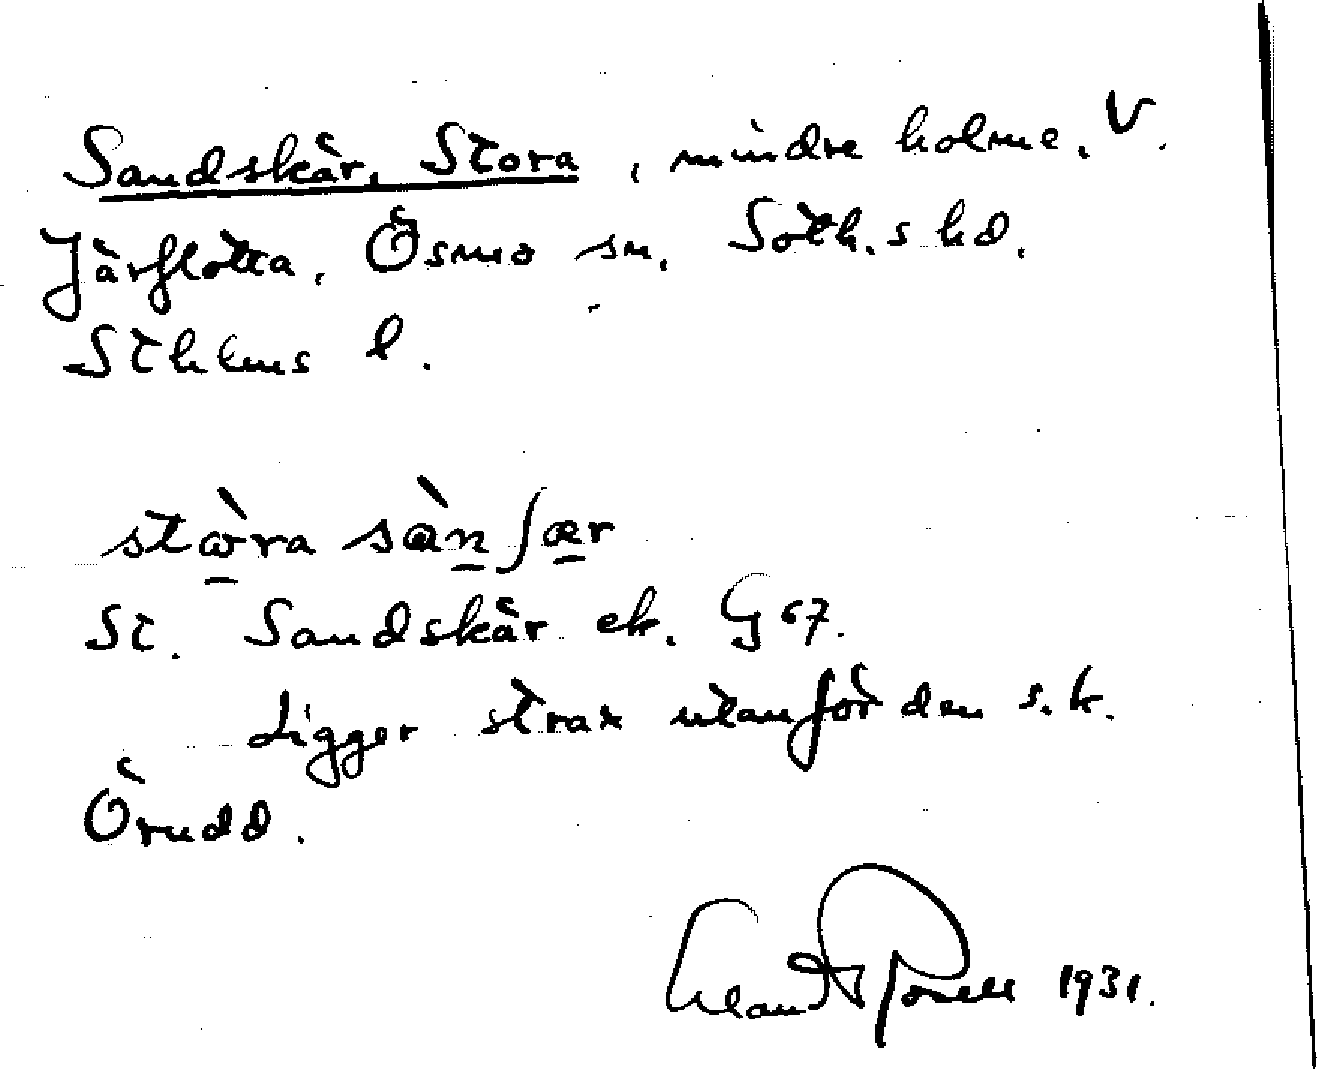 Sandskär, Stora, mindre holme, V.
Järflotta, Ösmo sn, Soth.s hd.
Sthlms l.
stὼra sàn ʃær
St. Sandskär ek. G 67.
Ligger strax utanför den s.k.
Örudd.
1931.